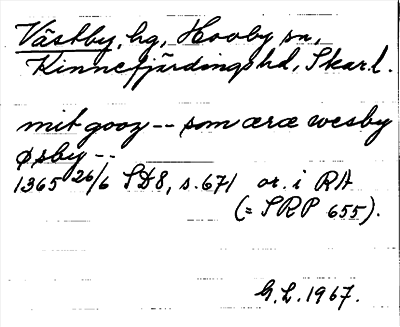 Västby, hg, Hovby sn,
Kinnefjärdings hd, Skar. l.
mit gooz -- som æræ wesby
øsby --
1365 26/6 SD 8, s. 671 or. i RA
(= SRP 655).
G. L. 1967.